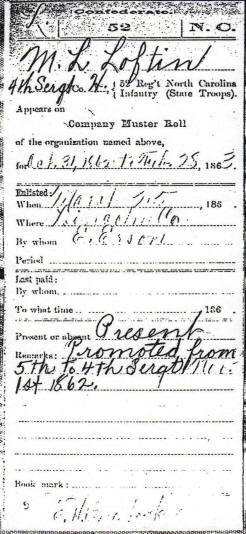 (Confederate.)
L 52 N. C.
M. L. Loftin
4th Sergt Co. H., 52 Reg't North Carolina
Infantry (State Troops).
Appears on
Company Muster Roll
of the organization named above,
for Oct. 31, 1862 to Feb. 28, 1863
Enlisted:
When 186 .
Where Lincoln Co.
By whom E. Erson
Period
Last paid:
By whom
To what time 186 .
Present or absent Present
Remarks: Promoted from
5th to 4th Sergt Nov.
1st 1862.
Book mark: